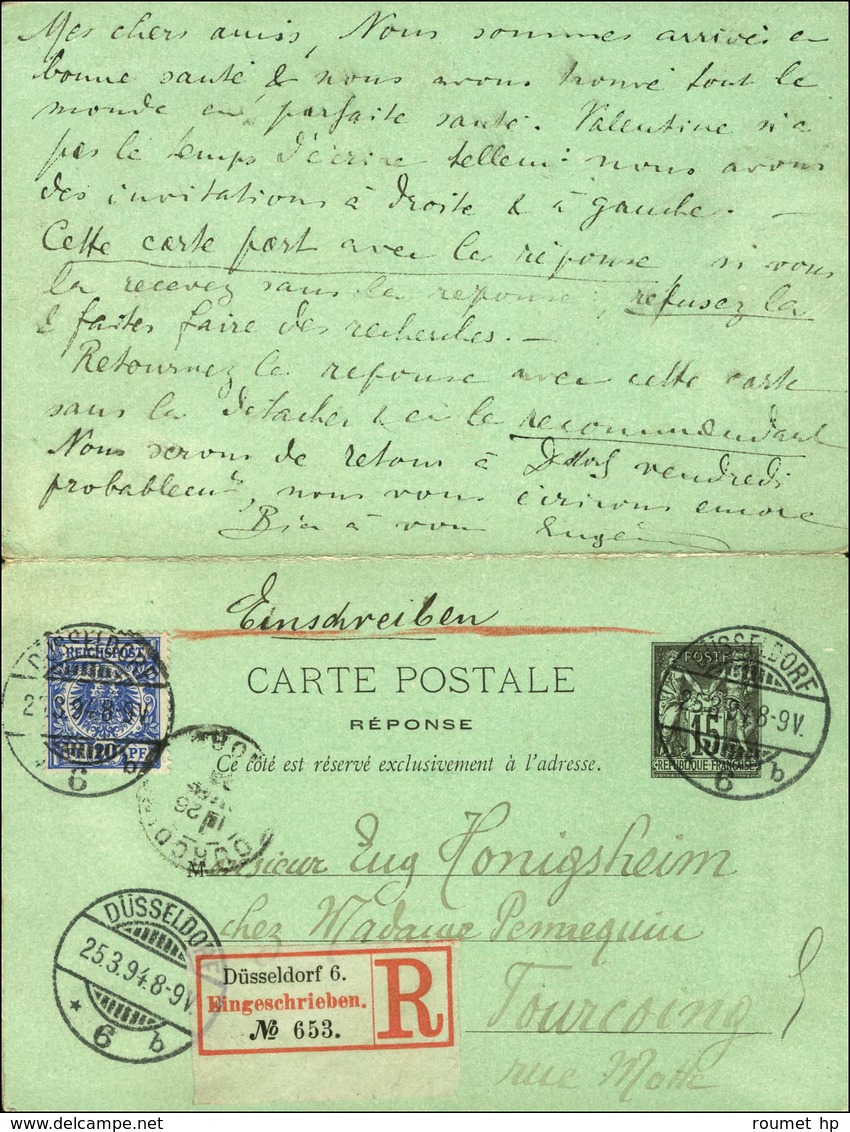 Mes chers amis, Nous sommes arrivés en
bonne santé & nous avons trouvé tout le
monde en parfaite santé. Valentine n'a
pas le temps d'écrire tellemt nous avons
des invitations à droite & à gauche. —
Cette carte part avec la réponse, si vous
la recevez sans la réponse, refusez la
& faites faire des recherches. —
Retournez la réponse avec cette carte
sans la détacher & en la recommandant
Nous serons de retour à Ddorf vendredi
probablemt, nous vous écrirons encore
Bien à vous Eugène
Einschreiben
DÜSSELDORF
25.3.94.8-9V.
6 b
REICHSPOST
20 PF
CARTE POSTALE
RÉPONSE
Ce côté est réservé exclusivement à l'adresse.
POSTES
15
RÉPUBLIQUE FRANÇAISE
DÜSSELDORF
25.3.94.8-9V.
6 b
Monsieur Eug Honigsheim
chez Madame Pennequin
Tourcoing
rue Motte
DÜSSELDORF
25.3.94.8-9V.
* 6 b
Düsseldorf 6.
Eingeschrieben.
№ 653.
R
roumet hp